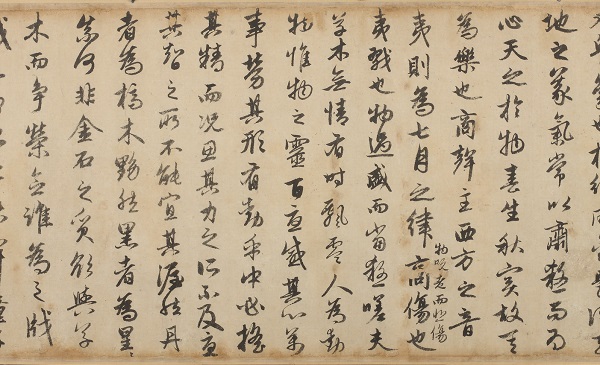 地之義氣常以肅殺而為
心天之於物春生秋實故其
為樂也商聲主西方之音
夷則為七月之律商傷也
物既老而悲傷
夷戮也物過盛而當殺嗟夫
草木無情有時飄零人為動
物惟物之靈百憂感其心萬
事勞其形有動乎中必搖
其精而況思其力之所不及憂
其智之所不能宜其渥然丹
者為槁木黟然黑者為星〻
奈何非金石之質欲與草
木而爭榮念誰為之戕